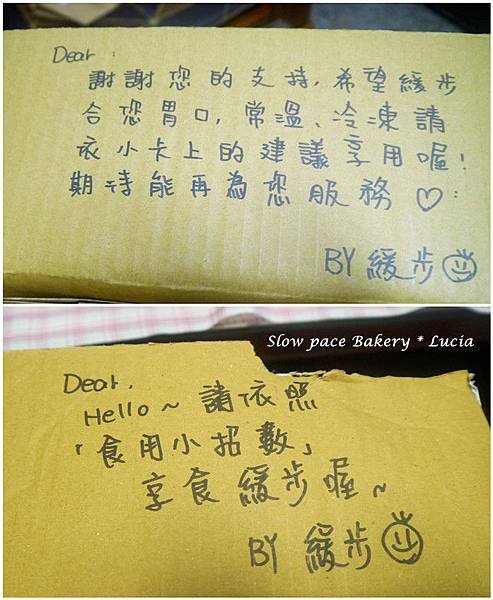 Dear:
謝謝您的支持,希望緩步
合您胃口,常溫、冷凍請
衣小卡上的建議享用喔!
期待能再為您服務♡:
BY 緩步
Slow pace Bakery * Lucia
Dear,
Hello~ 請依照
「食用小招數」
享食緩步喔~
BY 緩步